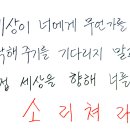 세상이 너에게 무언가를
해주기를 기다리지 말고
세상을 향해 너를
소리쳐라